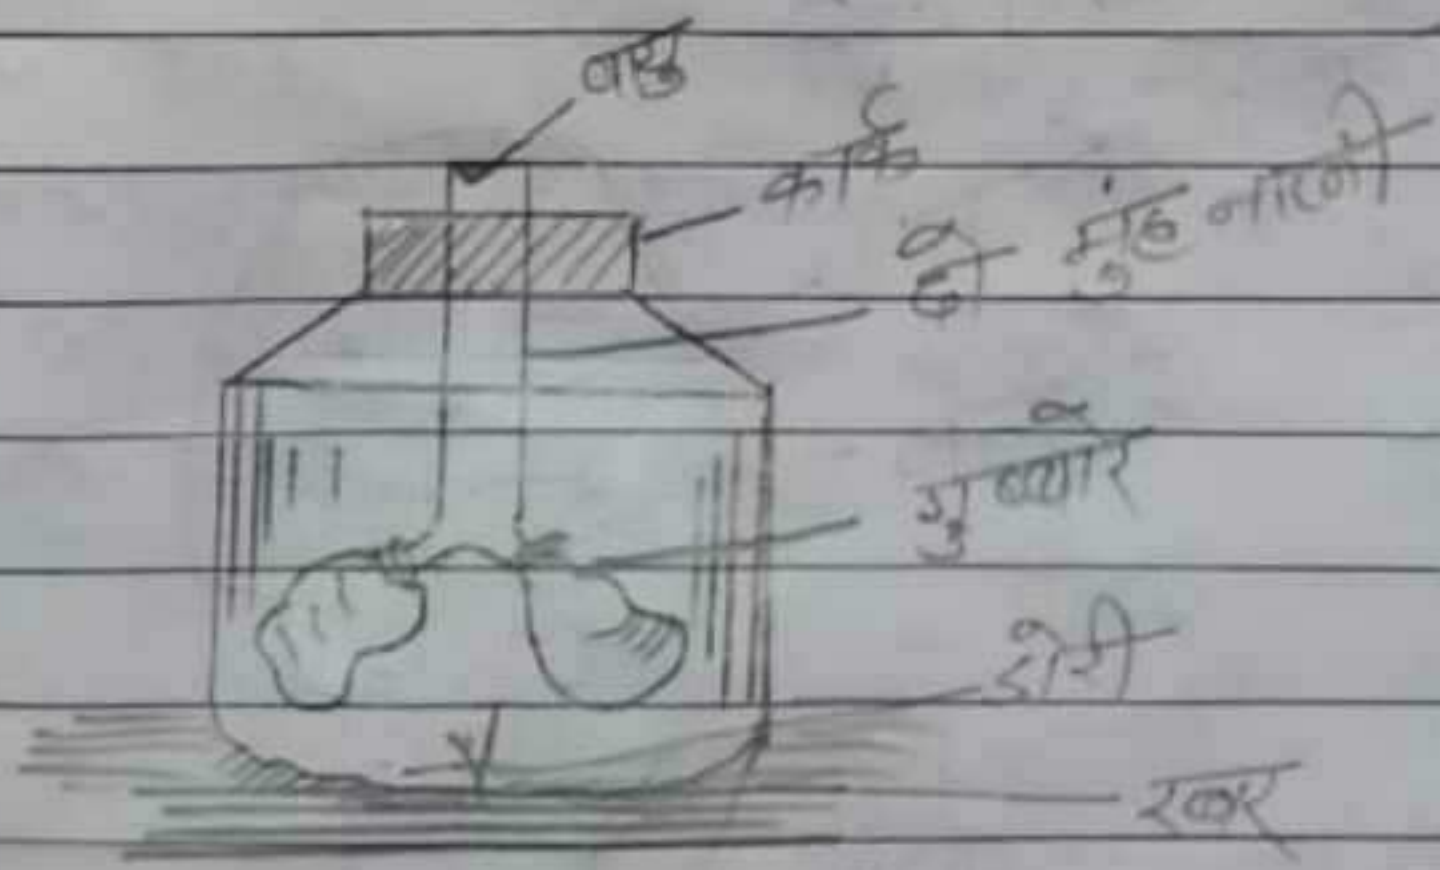 वायु
कार्क
दो मुंह नाली
गुब्बारे
डोरी
रबर